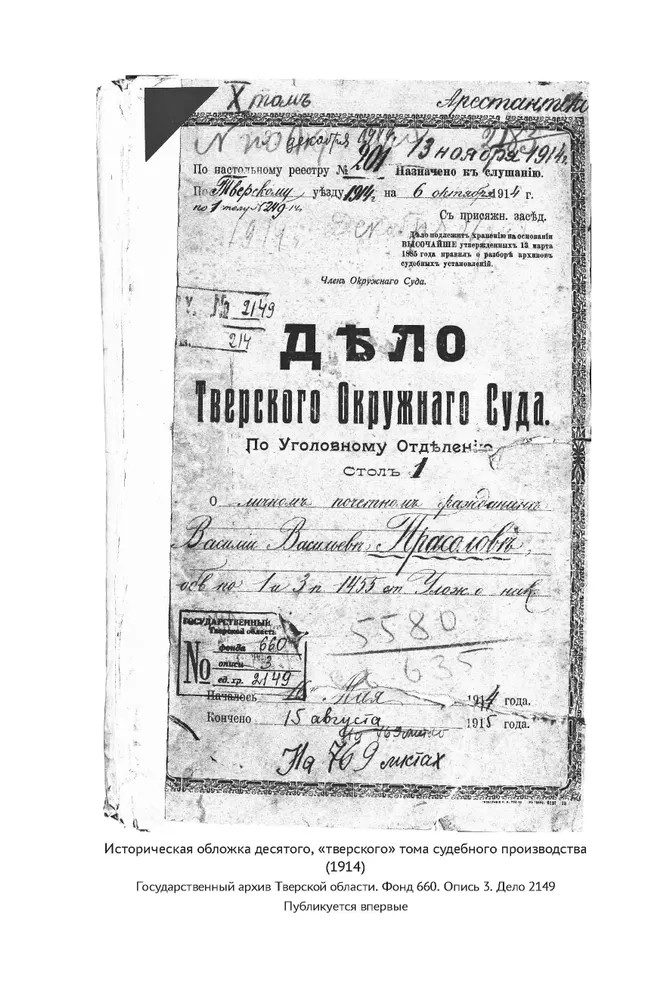 X томъ Арестантск
декабря 1914г. 13 ноября 1914г.
По настольному реестру № 201 Назначено къ слушанію.
По Тверскому уѣзду 1914г. на 6 октября 1914 г.
по 1 столу № 249 14г.
Съ присяжн. засѣд.
Дѣло подлежитъ храненію на основаніи
ВЫСОЧАЙШЕ утвержденныхъ 13 марта
1885 года правилъ о разборѣ архивовъ
судебныхъ установленій.
Членъ Окружнаго Суда.
№ 2149
214
ДѢЛО
Тверского Окружнаго Суда.
По Уголовному Отдѣленію
Столъ 1
О личномъ почетномъ гражданинѣ
Василіи Васильевѣ Прасоловѣ,
обв по 1 и 3 п 1455 ст Улож о нак
5580
635
ГОСУДАРСТВЕННЫЙ
Тверской области
фонда 660
№ описи 3
ед. хр. 2149
Началось Мая 1914 года.
Кончено 15 августа 1915 года.
На 769 листах
Историческая обложка десятого, «тверского» тома судебного производства
(1914)
Государственный архив Тверской области. Фонд 660. Опись 3. Дело 2149
Публикуется впервые